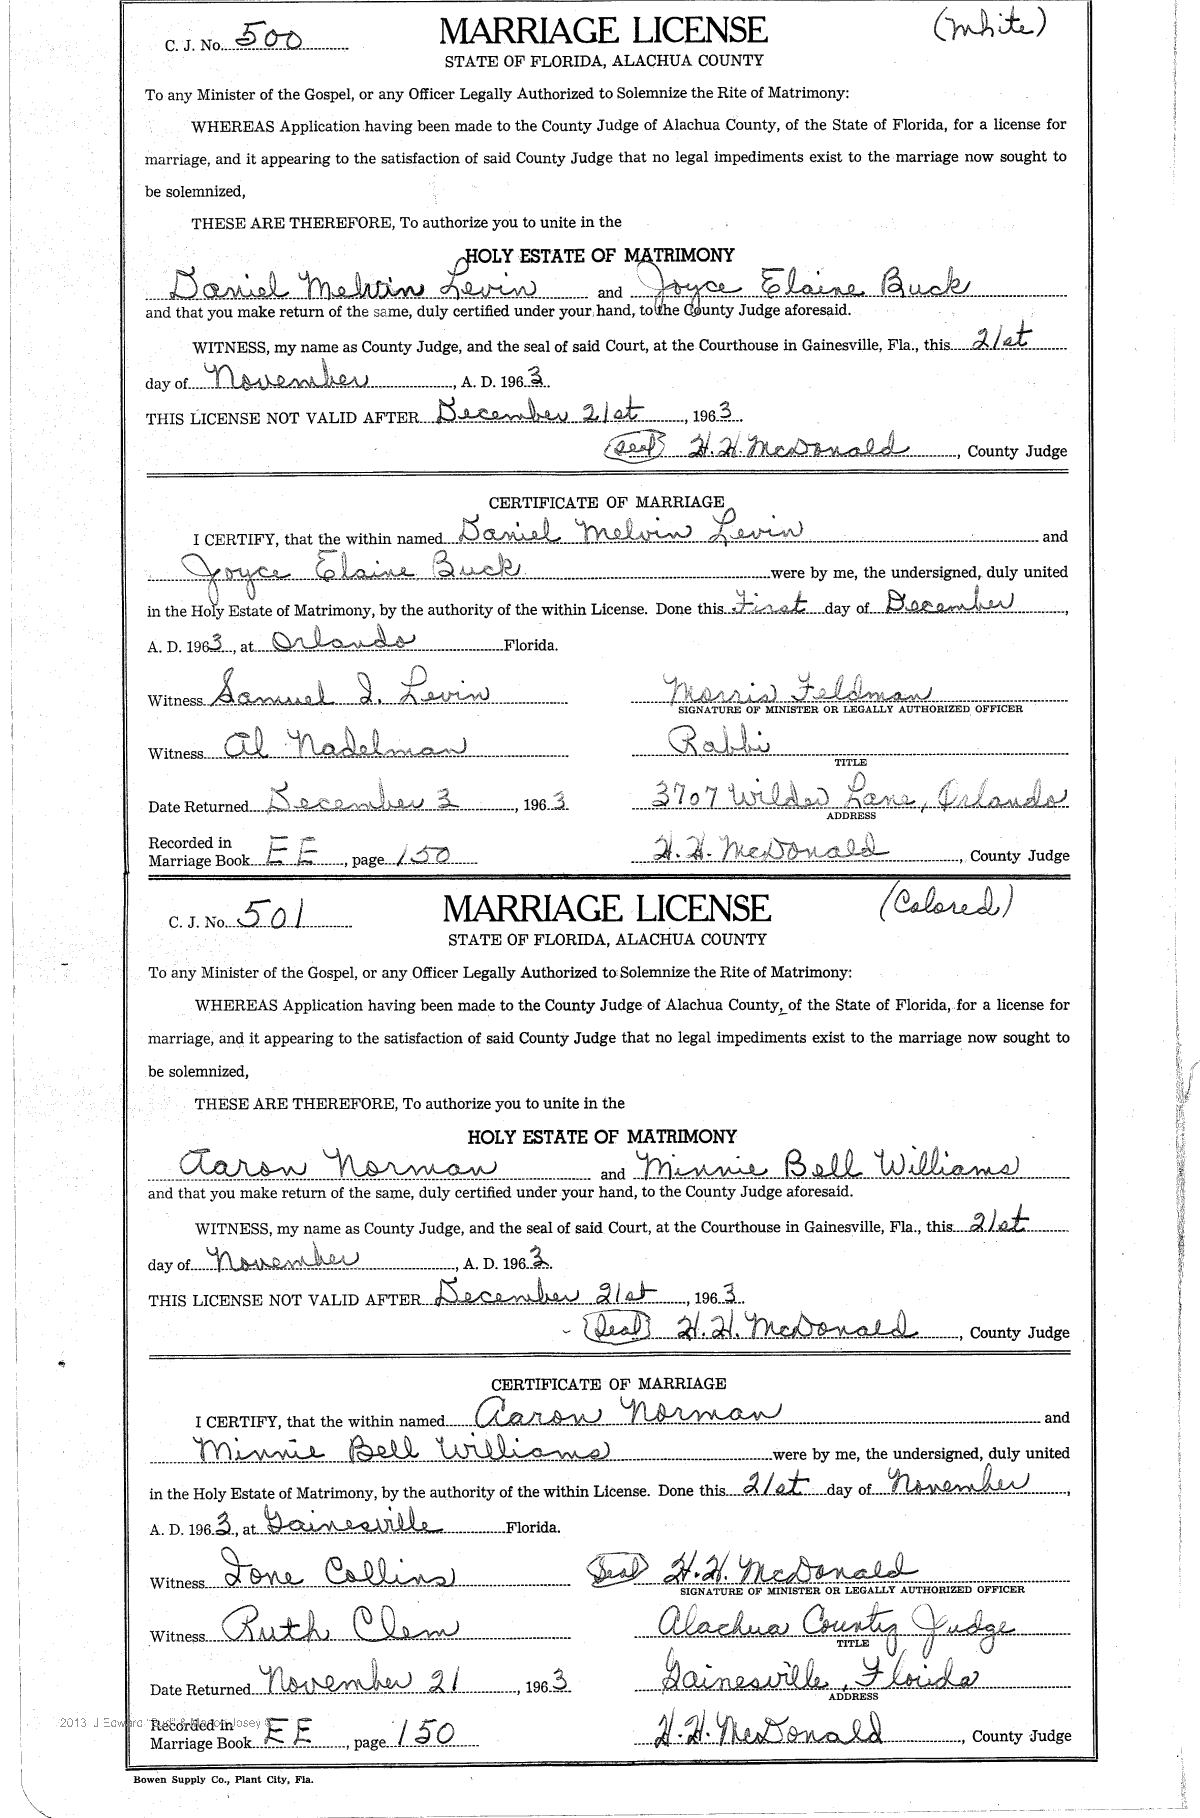 C. J. No. 500 MARRIAGE LICENSE (White)
STATE OF FLORIDA, ALACHUA COUNTY
To any Minister of the Gospel, or any Officer Legally Authorized to Solemnize the Rite of Matrimony:
WHEREAS Application having been made to the County Judge of Alachua County, of the State of Florida, for a license for
marriage, and it appearing to the satisfaction of said County Judge that no legal impediments exist to the marriage now sought to
be solemnized,
THESE ARE THEREFORE, To authorize you to unite in the
HOLY ESTATE OF MATRIMONY
Daniel Melvin Levin and Joyce Elaine Buck
and that you make return of the same, duly certified under your hand, to the County Judge aforesaid.
WITNESS, my name as County Judge, and the seal of said Court, at the Courthouse in Gainesville, Fla., this 21st
day of November, A. D. 1963.
THIS LICENSE NOT VALID AFTER December 21st, 1963.
(Seal) H. H. McDonald, County Judge
CERTIFICATE OF MARRIAGE
I CERTIFY, that the within named Daniel Melvin Levin and
Joyce Elaine Buck were by me, the undersigned, duly united
in the Holy Estate of Matrimony, by the authority of the within License. Done this First day of December,
A. D. 1963, at Orlando Florida.
Witness Samuel I. Levin Morris Feldman
SIGNATURE OF MINISTER OR LEGALLY AUTHORIZED OFFICER
Witness Al Nadelman Rabbi
TITLE
Date Returned December 3, 1963 3707 Wilder Lane, Orlando
ADDRESS
Recorded in
Marriage Book EE, page 150 H. H. McDonald, County Judge
C. J. No. 501 MARRIAGE LICENSE (Colored)
STATE OF FLORIDA, ALACHUA COUNTY
To any Minister of the Gospel, or any Officer Legally Authorized to Solemnize the Rite of Matrimony:
WHEREAS Application having been made to the County Judge of Alachua County, of the State of Florida, for a license for
marriage, and it appearing to the satisfaction of said County Judge that no legal impediments exist to the marriage now sought to
be solemnized,
THESE ARE THEREFORE, To authorize you to unite in the
HOLY ESTATE OF MATRIMONY
Aaron Norman and Minnie Bell Williams
and that you make return of the same, duly certified under your hand, to the County Judge aforesaid.
WITNESS, my name as County Judge, and the seal of said Court, at the Courthouse in Gainesville, Fla., this 21st
day of November, A. D. 1963.
THIS LICENSE NOT VALID AFTER December 21st, 1963.
(Seal) H. H. McDonald, County Judge
CERTIFICATE OF MARRIAGE
I CERTIFY, that the within named Aaron Norman and
Minnie Bell Williams were by me, the undersigned, duly united
in the Holy Estate of Matrimony, by the authority of the within License. Done this 21st day of November,
A. D. 1963, at Gainesville Florida.
Witness Ione Collins (Seal) H. H. McDonald
SIGNATURE OF MINISTER OR LEGALLY AUTHORIZED OFFICER
Witness Ruth Clem Alachua County Judge
TITLE
Date Returned November 21, 1963 Gainesville, Florida
ADDRESS
2013 J Edward "Bud" &
Recorded in
Marriage Book EE, page 150 H. H. McDonald, County Judge
Bowen Supply Co., Plant City, Fla.